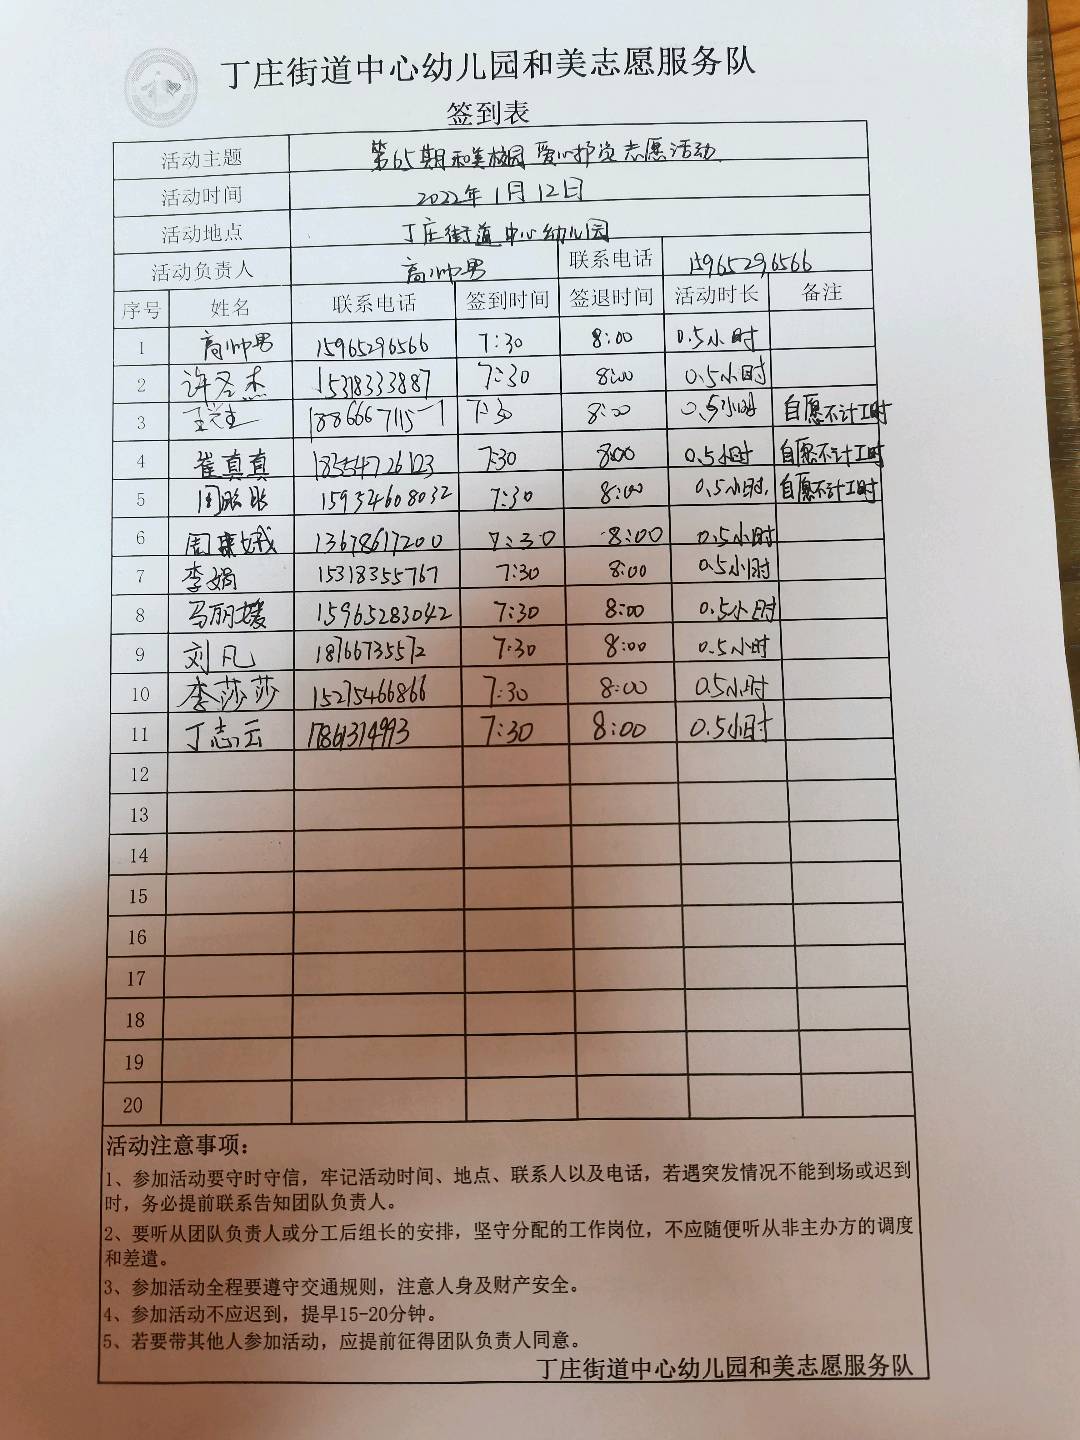 丁庄街道中心幼儿园和美志愿服务队
签到表
活动主题 第65期和美校园爱心护学志愿活动
活动时间 2022年1月12日
活动地点 丁庄街道中心幼儿园
活动负责人 高帅男 联系电话 15965296566
序号 姓名 联系电话 签到时间 签退时间 活动时长 备注
1 高帅男 15965296566 7:30 8:00 0.5小时
2 许冬杰 15318333887 7:30 8:00 0.5小时
3 18866671157 7:30 8:00 0.5小时 自愿不计工时
4 崔真真 18354726123 7:30 8:00 0.5小时 自愿不计工时
5 15934608032 7:30 8:00 0.5小时 自愿不计工时
6 13678617200 7:30 8:00 0.5小时
7 李娟 15318355767 7:30 8:00 0.5小时
8 马丽媛 15965283042 7:30 8:00 0.5小时
9 刘凡 18766735572 7:30 8:00 0.5小时
10 李莎莎 15275466866 7:30 8:00 0.5小时
11 丁志云 7:30 8:00 0.5小时
12
13
14
15
16
17
18
19
20
活动注意事项：
1、参加活动要守时守信，牢记活动时间、地点、联系人以及电话，若遇突发情况不能到场或迟到
时，务必提前联系告知团队负责人。
2、要听从团队负责人或分工后组长的安排，坚守分配的工作岗位，不应随便听从非主办方的调度
和差遣。
3、参加活动全程要遵守交通规则，注意人身及财产安全。
4、参加活动不应迟到，提早15-20分钟。
5、若要带其他人参加活动，应提前征得团队负责人同意。
丁庄街道中心幼儿园和美志愿服务队